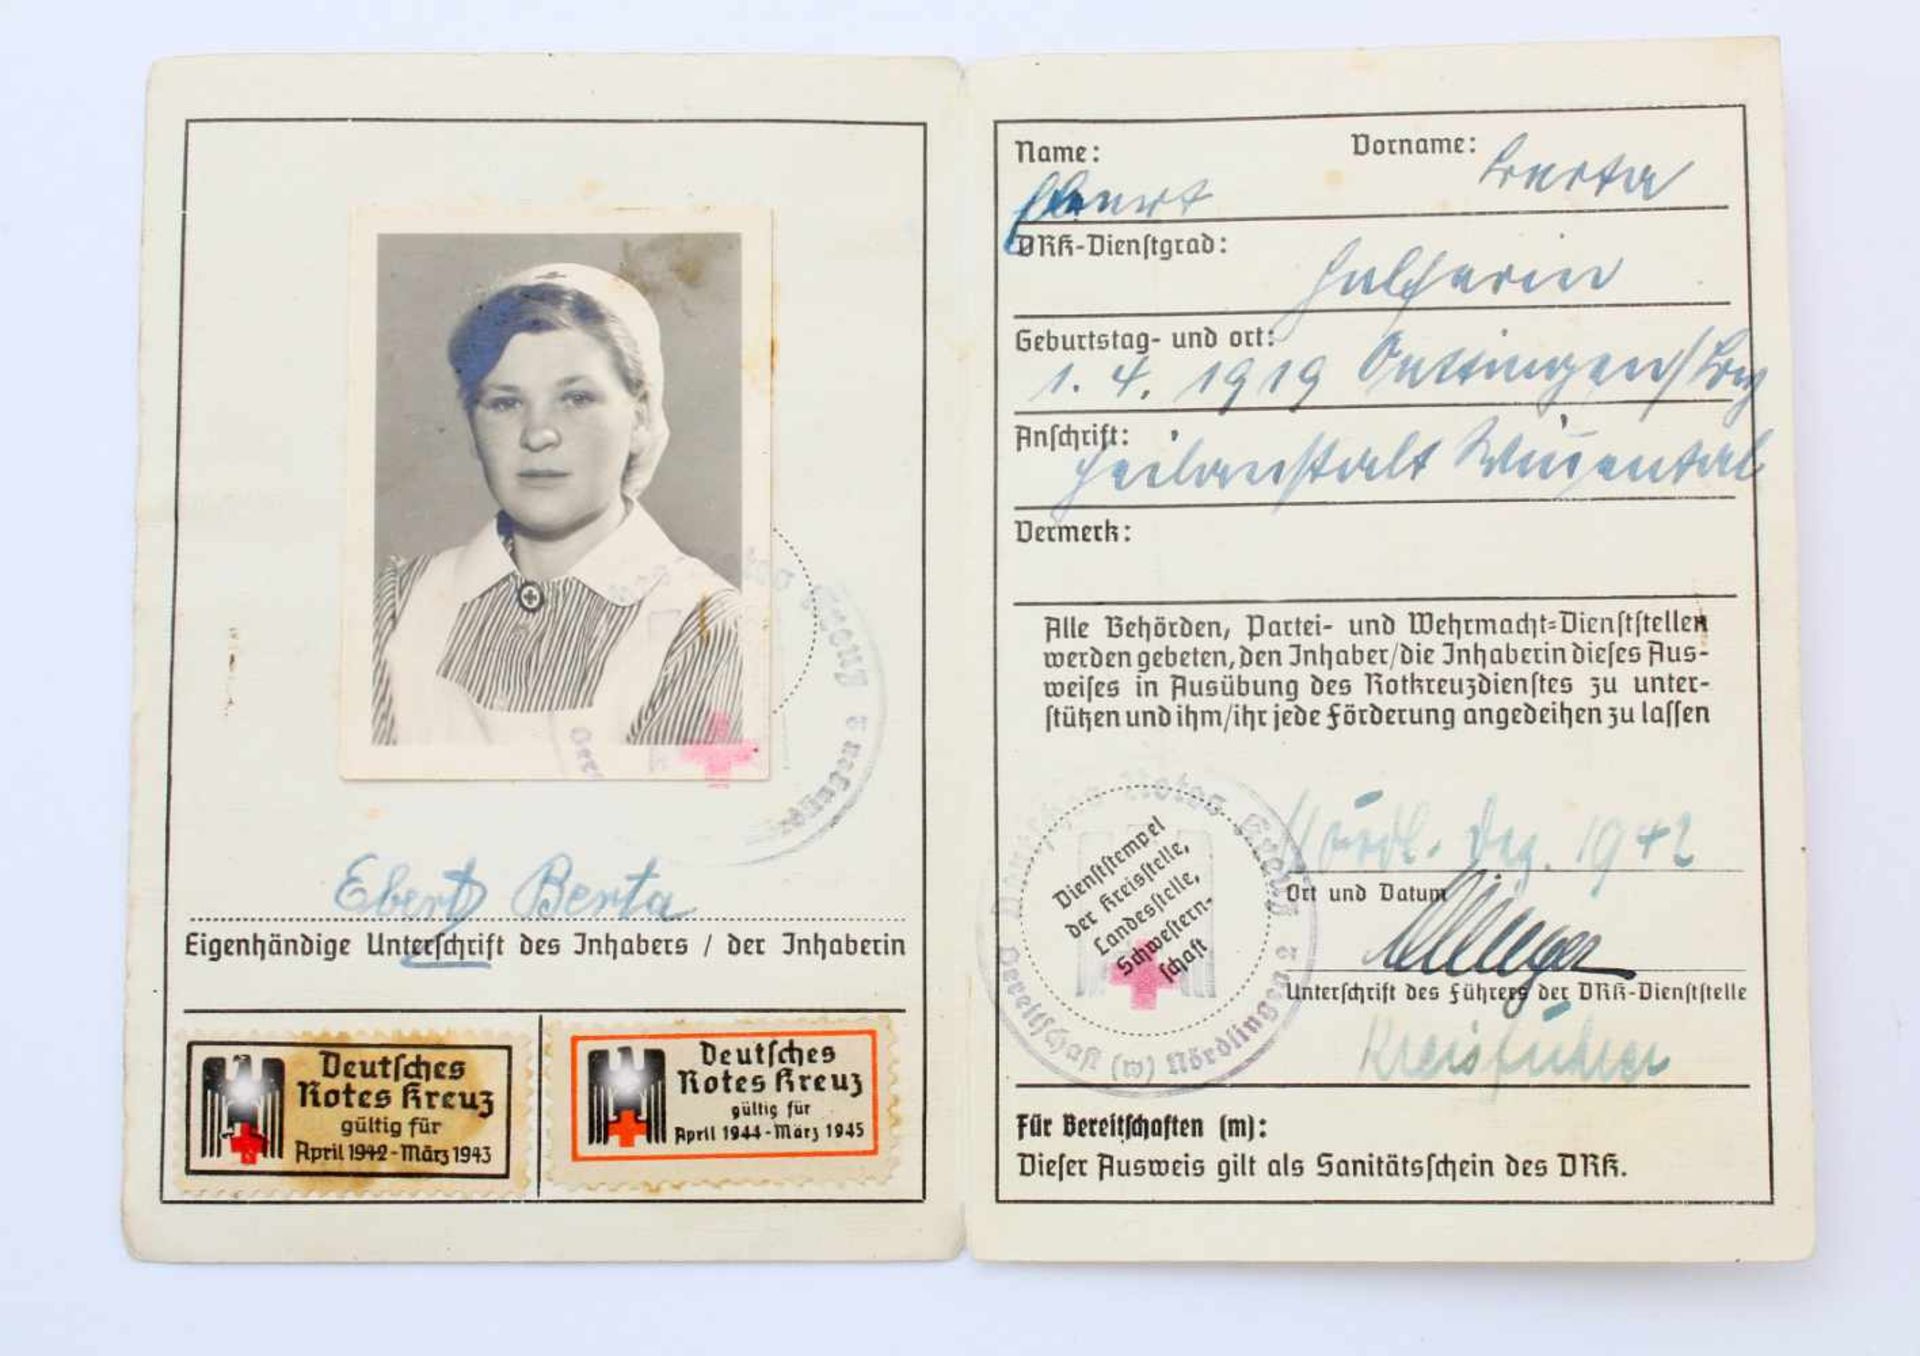 Ebert Berta
Eigenhändige Unterschrift des Inhabers / der Inhaberin
Deutsches
Rotes Kreuz
gültig für
April 1942-März 1943
Deutsches
Rotes Kreuz
gültig für
April 1944-März 1945
Name: Vorname:
Ebert Berta
DRK-Dienstgrad:
Helferin
Geburtstag- und ort:
1. 4. 1919 Oettingen/Bay
Anschrift:
Heilanstalt
Vermerk:
Alle Behörden, Partei- und Wehrmacht-Dienststellen
werden gebeten, den Inhaber/die Inhaberin dieses Aus-
weises in Ausübung des Rotkreuzdienstes zu unter-
stützen und ihm/ihr jede Förderung angedeihen zu lassen
Deutsches Rotes Kreuz
Bereitschaft (w) Nördlingen 2
Dienststempel
der Kreisstelle,
Landesstelle,
Schwestern-
schaft
Nördl. Dez. 1942
Ort und Datum
Unterschrift des Führers der DRK-Dienststelle
Kreisführer
Für Bereitschaften (m):
Dieser Ausweis gilt als Sanitätsschein des DRK.